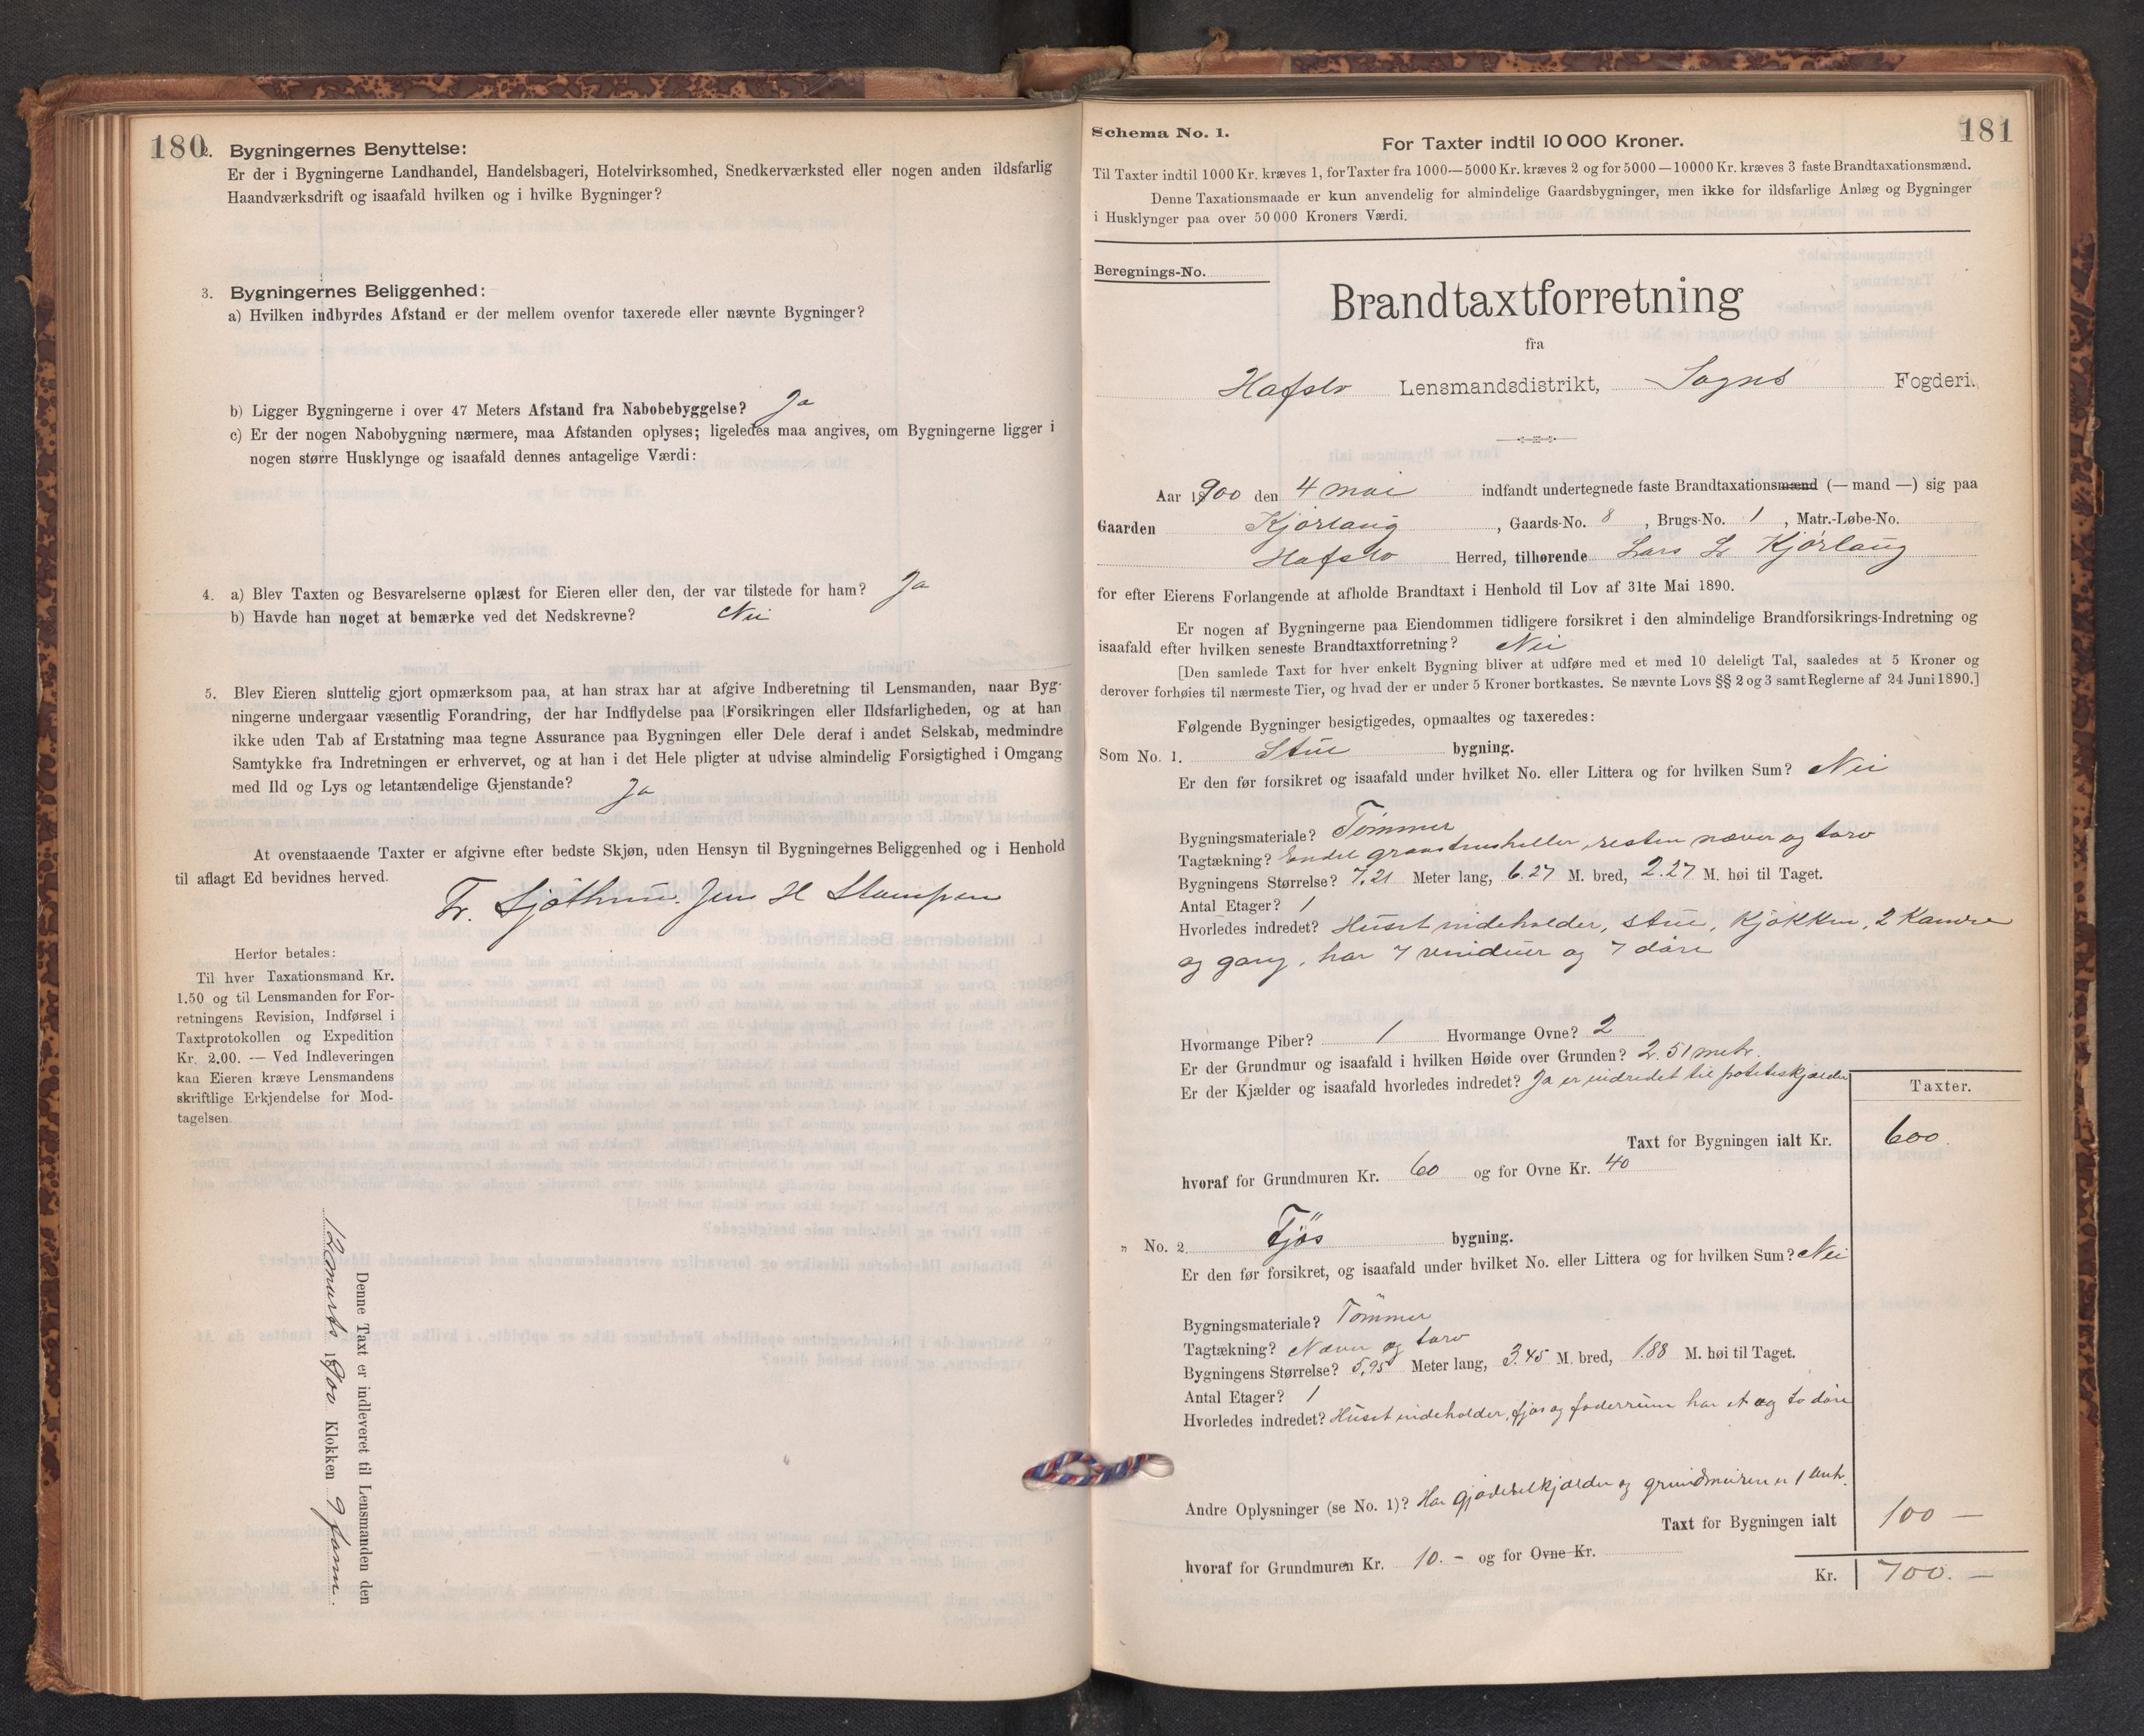 180
2. Bygningernes Benyttelse:
Er der i Bygningerne Landhandel, Handelsbageri, Hotelvirksomhed, Snedkerværksted eller nogen anden ildsfarlig
Haandværksdrift og isaafald hvilken og i hvilke Bygninger?
3. Bygningernes Beliggenhed:
a) Hvilken indbyrdes Afstand er der mellem ovenfor taxerede eller nævnte Bygninger?
b) Ligger Bygningerne i over 47 Meters Afstand fra Nabobebyggelse? Ja
c) Er der nogen Nabobygning nærmere, maa Afstanden oplyses; ligeledes maa angives, om Bygningerne ligger i
nogen større Husklynge og isaafald dennes antagelige Værdi:
4. a) Blev Taxten og Besvarelserne oplæst for Eieren eller den, der var tilstede for ham? Ja
b) Havde han noget at bemærke ved det Nedskrevne? Nei
5. Blev Eieren sluttelig gjort opmærksom paa, at han strax har at afgive Indberetning til Lensmanden, naar Byg-
ningerne undergaar væsentlig Forandring, der har Indflydelse paa Forsikringen eller Ildsfarligheden, og at han
ikke uden Tab af Erstatning maa tegne Assurance paa Bygningen eller Dele deraf i andet Selskab, medmindre
Samtykke fra Indretningen er erhvervet, og at han i det Hele pligter at udvise almindelig Forsigtighed i Omgang
med Ild og Lys og letantændelige Gjenstande? Ja
At ovenstaaende Taxter er afgivne efter bedste Skjøn, uden Hensyn til Bygningernes Beliggenhed og i Henhold
til aflagt Ed bevidnes herved.
Fr. Sjøthun. Jens H Stampen
Herfor betales:
Til hver Taxationsmand Kr.
1.50 og til Lensmanden for For-
retningens Revision, Indførsel i
Taxtprotokollen og Expedition
Kr. 2.00. — Ved Indleveringen
kan Eieren kræve Lensmandens
skriftlige Erkjendelse for Mod-
tagelsen.
Denne Taxt er indleveret til Lensmanden den
12 marts 1900 Klokken 9 form.
Schema No. 1.
181
For Taxter indtil 10 000 Kroner.
Til Taxter indtil 1000 Kr. kræves 1, for Taxter fra 1000—5000 Kr. kræves 2 og for 5000—10000 Kr. kræves 3 faste Brandtaxationsmænd.
Denne Taxationsmaade er kun anvendelig for almindelige Gaardsbygninger, men ikke for ildsfarlige Anlæg og Bygninger
i Husklynger paa over 50 000 Kroners Værdi.
Beregnings-No.
Brandtaxtforretning
fra
Hafslo Lensmandsdistrikt, Sogns Fogderi.
Aar 1900 den 4 mai indfandt undertegnede faste Brandtaxationsmænd (— mand —) sig paa
Gaarden Kjørlaug, Gaards-No. 8, Brugs-No. 1, Matr.-Løbe-No.
Hafslo Herred, tilhørende Lars L Kjørlaug
for efter Eierens Forlangende at afholde Brandtaxt i Henhold til Lov af 31te Mai 1890.
Er nogen af Bygningerne paa Eiendommen tidligere forsikret i den almindelige Brandforsikrings-Indretning og
isaafald efter hvilken seneste Brandtaxtforretning? Nei
[Den samlede Taxt for hver enkelt Bygning bliver at udføre med et med 10 deleligt Tal, saaledes at 5 Kroner og
derover forhøies til nærmeste Tier, og hvad der er under 5 Kroner bortkastes. Se nævnte Lovs §§ 2 og 3 samt Reglerne af 24 Juni 1890.]
Følgende Bygninger besigtigedes, opmaaltes og taxeredes:
Som No. 1. Stue bygning.
Er den før forsikret og isaafald under hvilket No. eller Littera og for hvilken Sum? Nei
Bygningsmateriale? Tømmer
Tagtækning? Endel graastensheller, resten næver og torv
Bygningens Størrelse? 7,21 Meter lang, 6.27 M. bred, 2.27 M. høi til Taget.
Antal Etager? 1
Hvorledes indredet? Huset indeholder, stue, Kjøkken, 2 Kamre
og gang, har 7 vinduer og 7 døre
Hvormange Piber? 1 Hvormange Ovne? 2
Er der Grundmur og isaafald i hvilken Høide over Grunden? 2.51 metr.
Er der Kjælder og isaafald hvorledes indredet? Ja er indredet til poteteskjælder
Taxter.
Taxt for Bygningen ialt Kr. 600.
hvoraf for Grundmuren Kr. 60 og for Ovne Kr. 40
„ No. 2. Fjøs bygning.
Er den før forsikret, og isaafald under hvilket No. eller Littera og for hvilken Sum? Nei
Bygningsmateriale? Tømmer
Tagtækning? Næver og torv
Bygningens Størrelse? 5,95 Meter lang, 3.45 M. bred, 1.88 M. høi til Taget.
Antal Etager? 1
Hvorledes indredet? Huset indeholder, fjøs og foderrum har et og to døre
Andre Oplysninger (se No. 1)? Har gjødselkjælder og grundmuren er 1 metr.
Taxt for Bygningen ialt 100 —
hvoraf for Grundmuren Kr. 10. - og for Ovne Kr.
Kr. 700. —